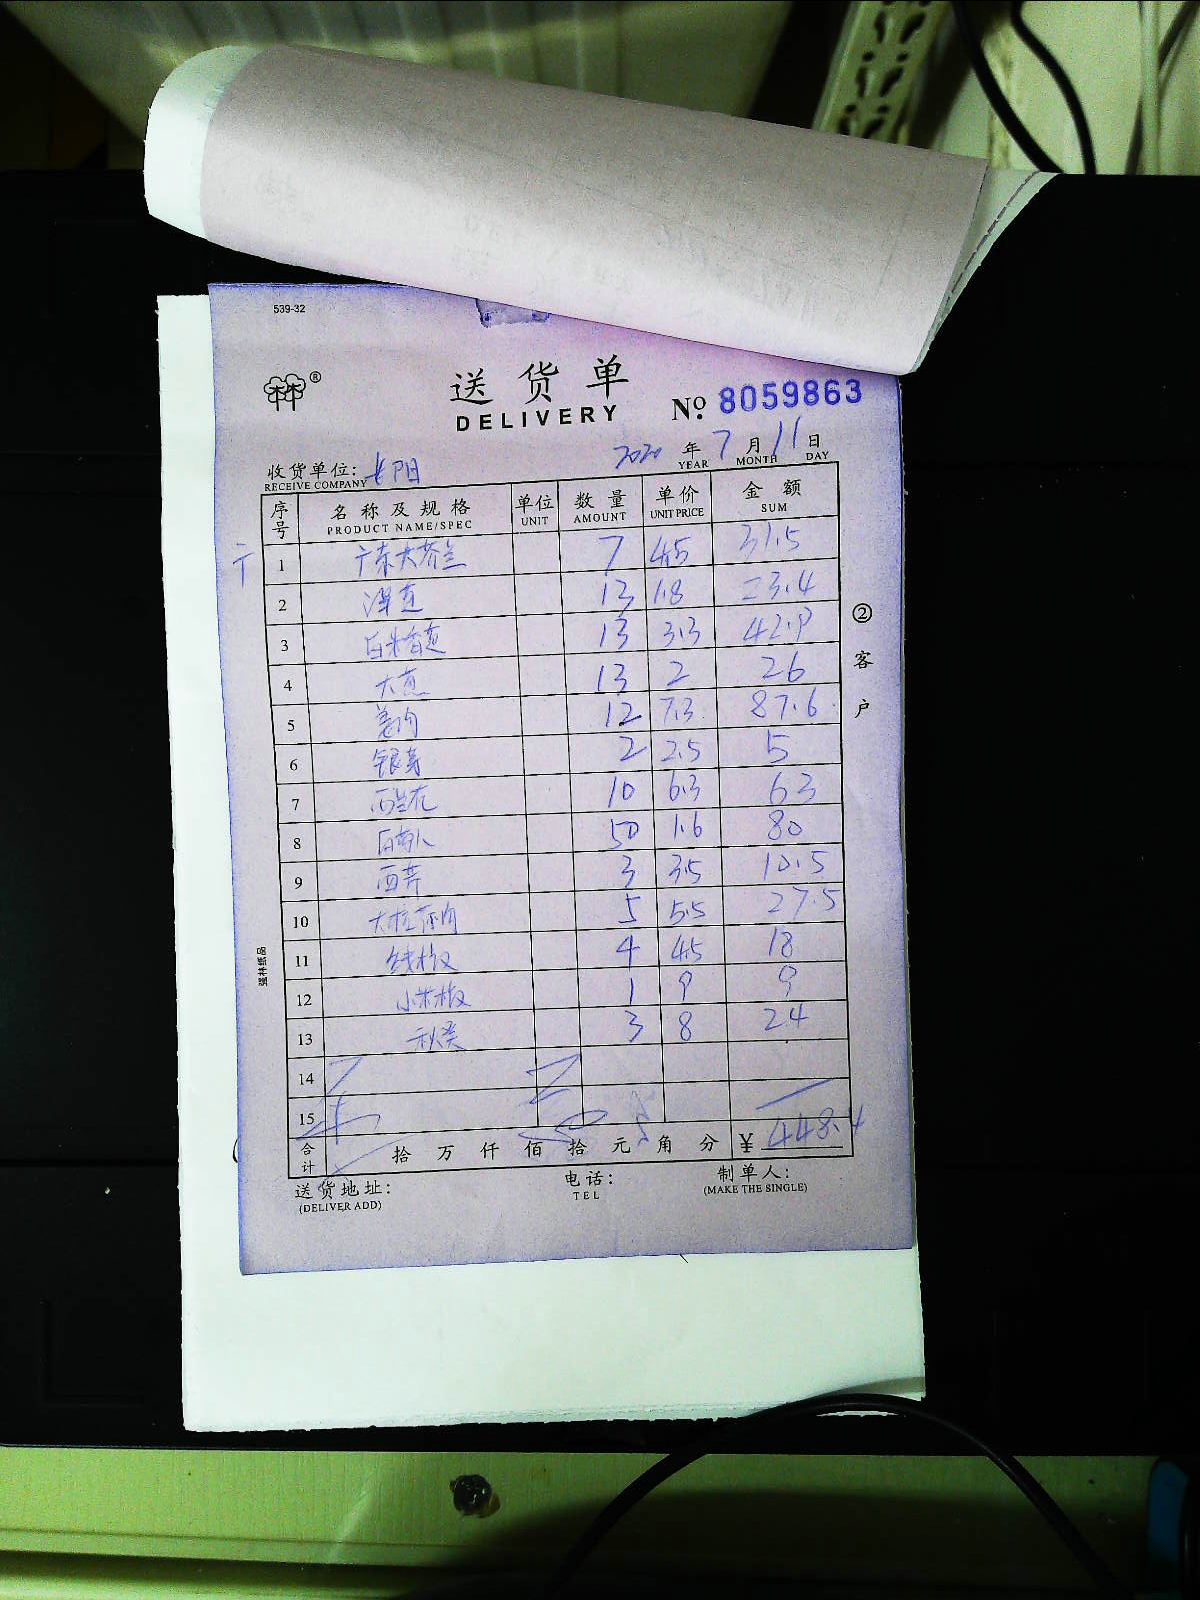 539-32
®
送货单
DELIVERY
№ 8059863
2020 年 7 月 11 日
YEAR MONTH DAY
收货单位: 长阳
RECEIVE COMPANY
序号 名称及规格 单位 数量 单价 金额
PRODUCT NAME/SPEC UNIT AMOUNT UNIT PRICE SUM
1 广东大芥兰 7 4.5 31.5
2 洋葱 13 1.8 23.4
3 13 3.3 42.9
4 大葱 13 2 26
5 姜肉 12 7.3 87.6
6 银芽 2 2.5 5
7 西兰花 10 6.3 63
8 50 1.6 80
9 西芹 3 3.5 10.5
10 5 5.5 27.5
11 线椒 4 4.5 18
12 小米椒 1 9 9
13 秋葵 3 8 24
14
15
合计 拾 万 仟 佰 拾 元 角 分 ¥ 448.4
送货地址: 电话: 制单人:
(DELIVER ADD) TEL (MAKE THE SINGLE)
② 客户
强林纸品